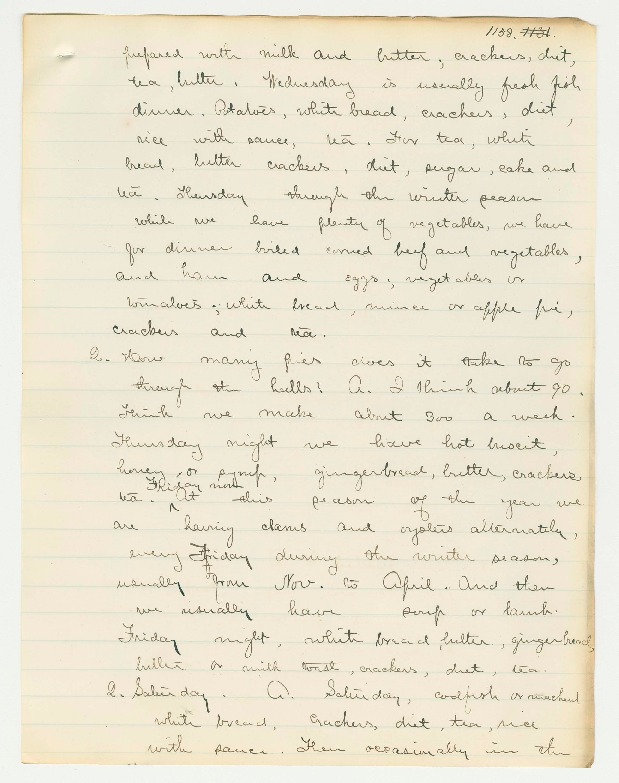 1138. 1131.
prepared with milk and butter, crackers, diet,
tea, butter. Wednesday is usually fresh fish
dinner. Potatoes, white bread, crackers, diet,
rice with sauce, tea. For tea, white
bread, butter crackers, diet, sugar, cake and
tea. Thursday through the winter season
while we have plenty of vegetables, we have
for dinner boiled corned beef and vegetables,
and ham and eggs, vegetables or
tomatoes; white bread, mince or apple pie,
crackers and tea.
Q. How many pies does it take to go
through the halls? A. I think about 90.
Think we make about 300 a week.
Thursday night we have hot biscuit,
honey, or syrup, gingerbread, butter, crackers
Friday noon
tea. At this season of the year we
are having clams and oysters alternately,
every Friday during the winter season,
usually from Nov. to April. And then
we usually have soup or lamb.
Friday night, white bread, butter, gingerbread,
butter or milk toast, crackers, diet, tea.
Q. Saturday. A. Saturday, codfish or mackerel
white bread, crackers, diet, tea, rice
with sauce. Then occasionally in the